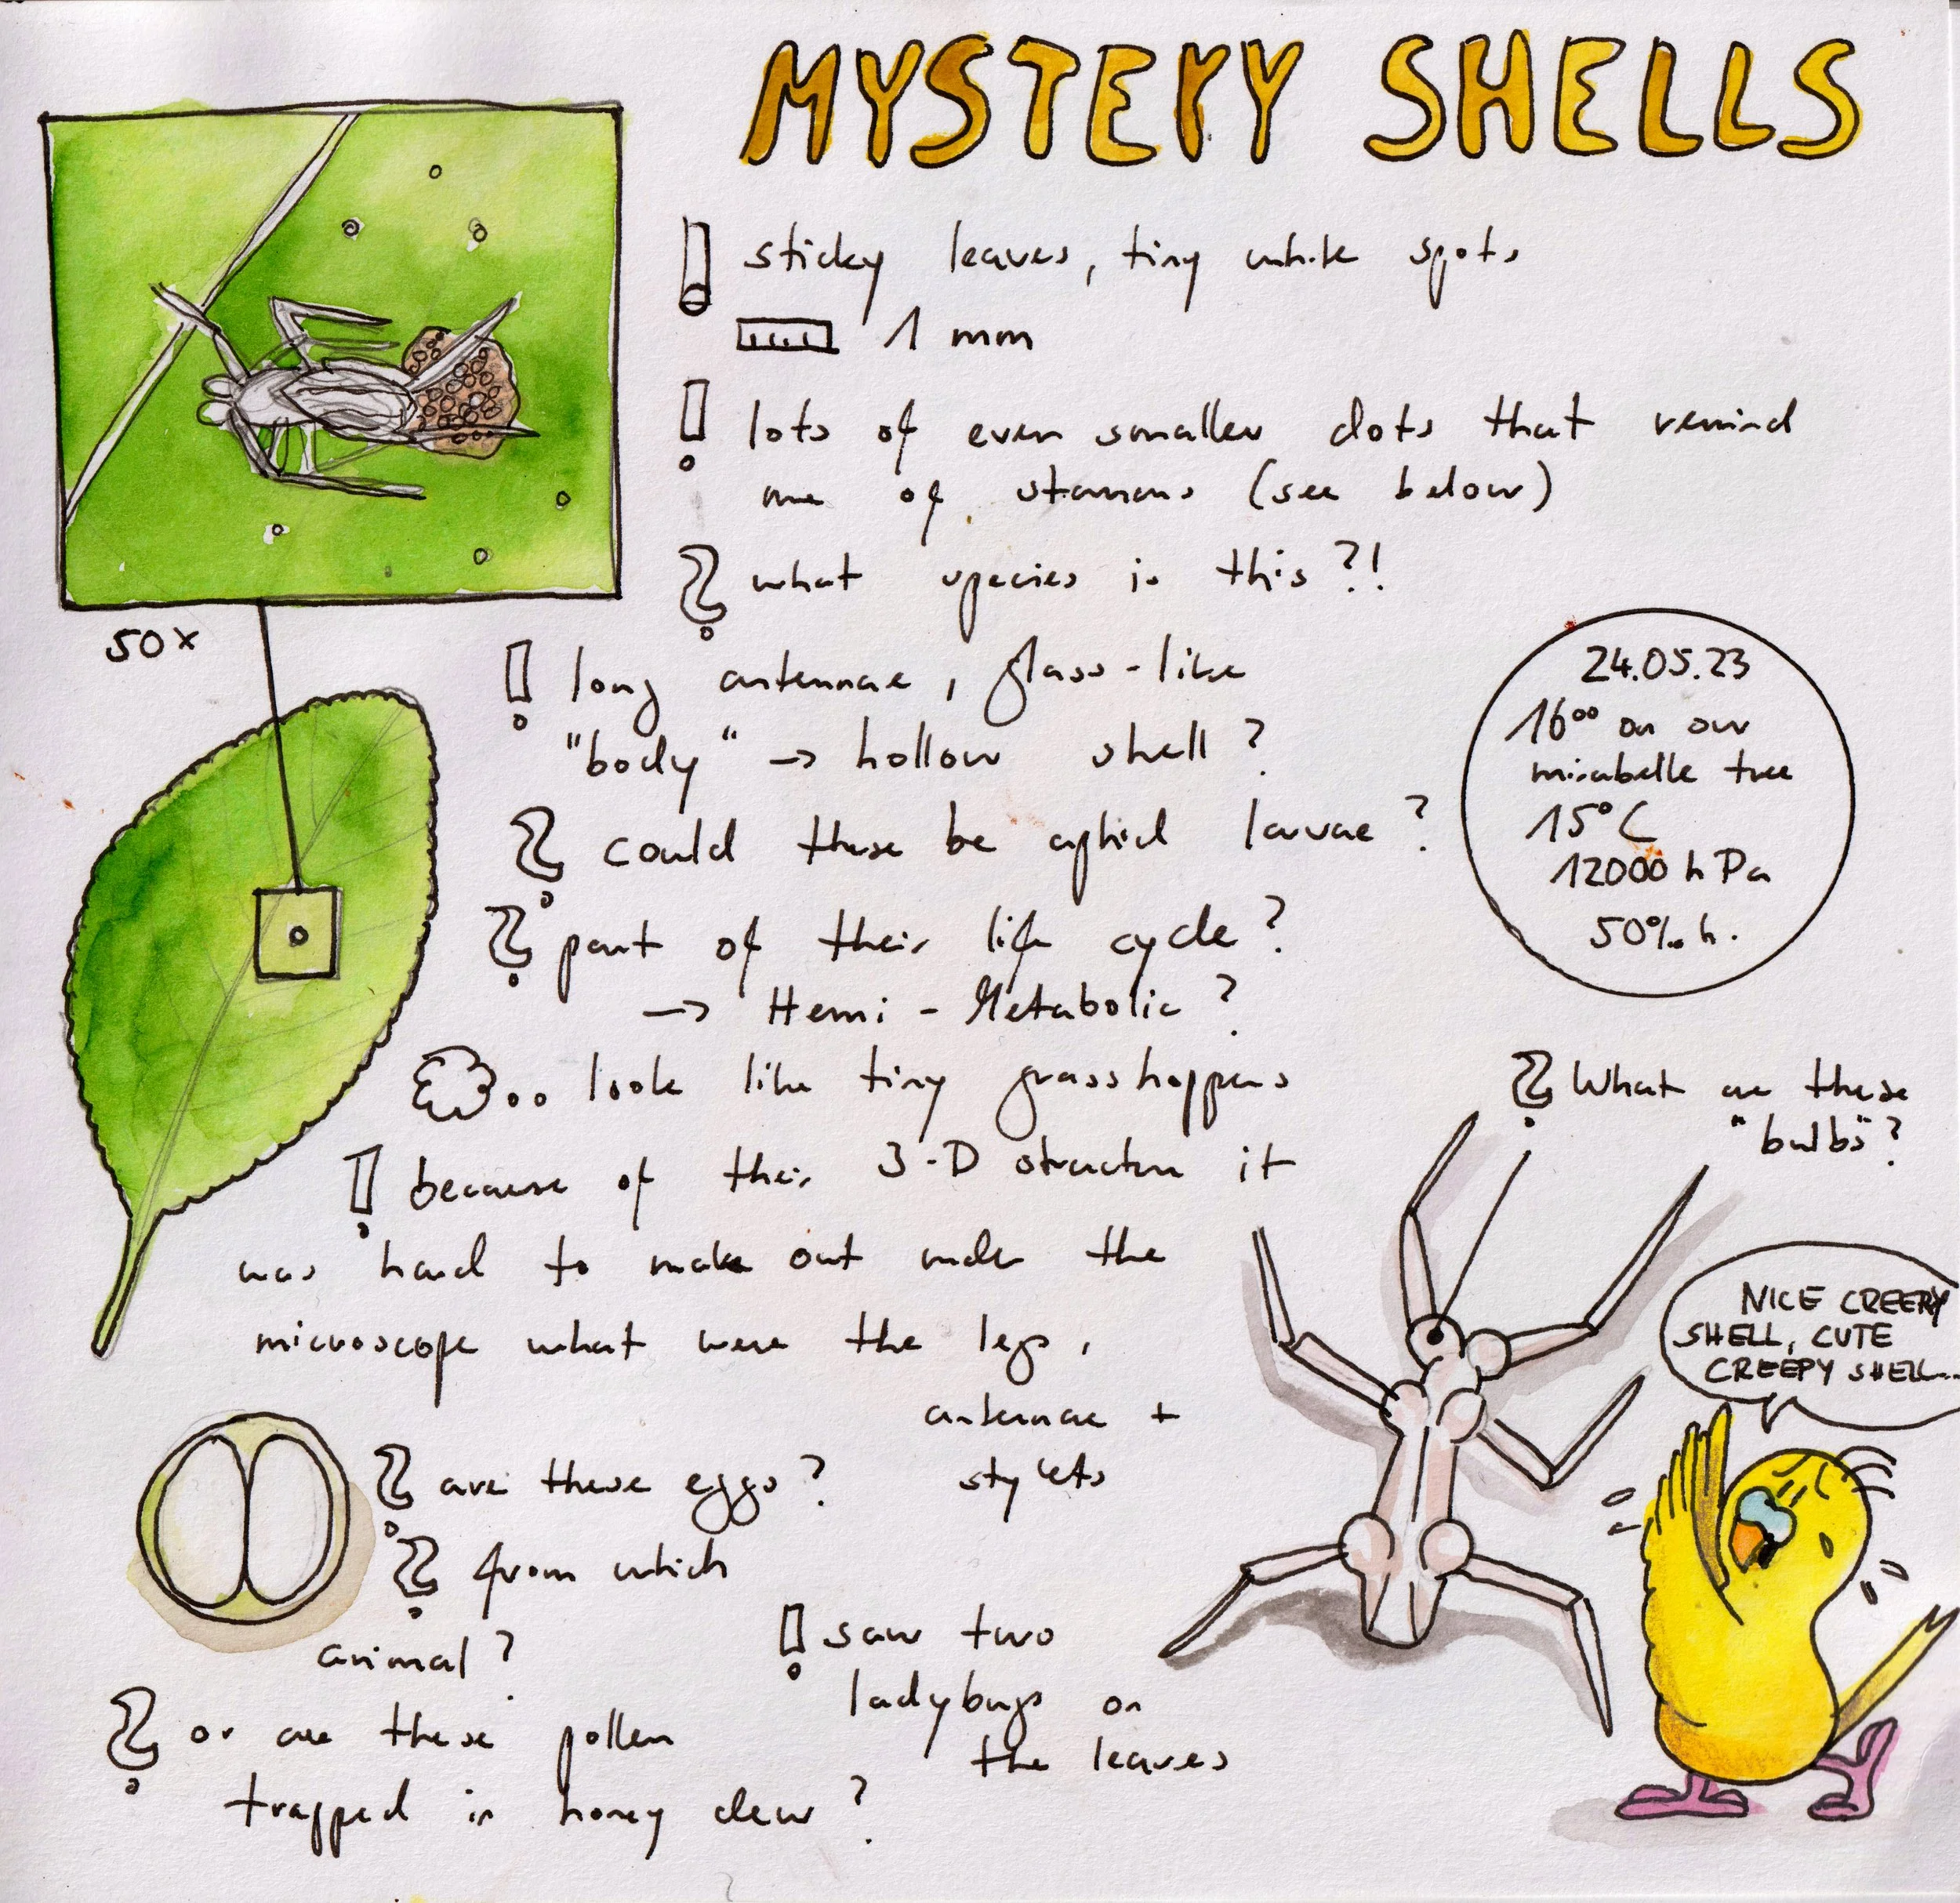 MYSTERY SHELLS
! sticky leaves, tiny white spots
1 mm
! lots of even smaller dots that remind
me of stamens (see below)
? what species is this?!
50x
! long antennae, glass-like
"body" → hollow shell?
? could these be aphid larvae?
? part of their life cycle?
→ Hemi-Metabolic?
24.05.23
16⁰⁰ on our
mirabelle tree
15°C
12000 hPa
50% h.
look like tiny grasshoppers
! because of their 3-D structure it
was hard to make out under the
microscope what were the legs,
antennae +
stylets
? What are these
"bulbs"?
NICE CREEPY
SHELL, CUTE
CREEPY SHELL...
? are these eggs?
? from which
animal?
? or are these pollen
trapped in honey dew?
! saw two
ladybugs on
the leaves